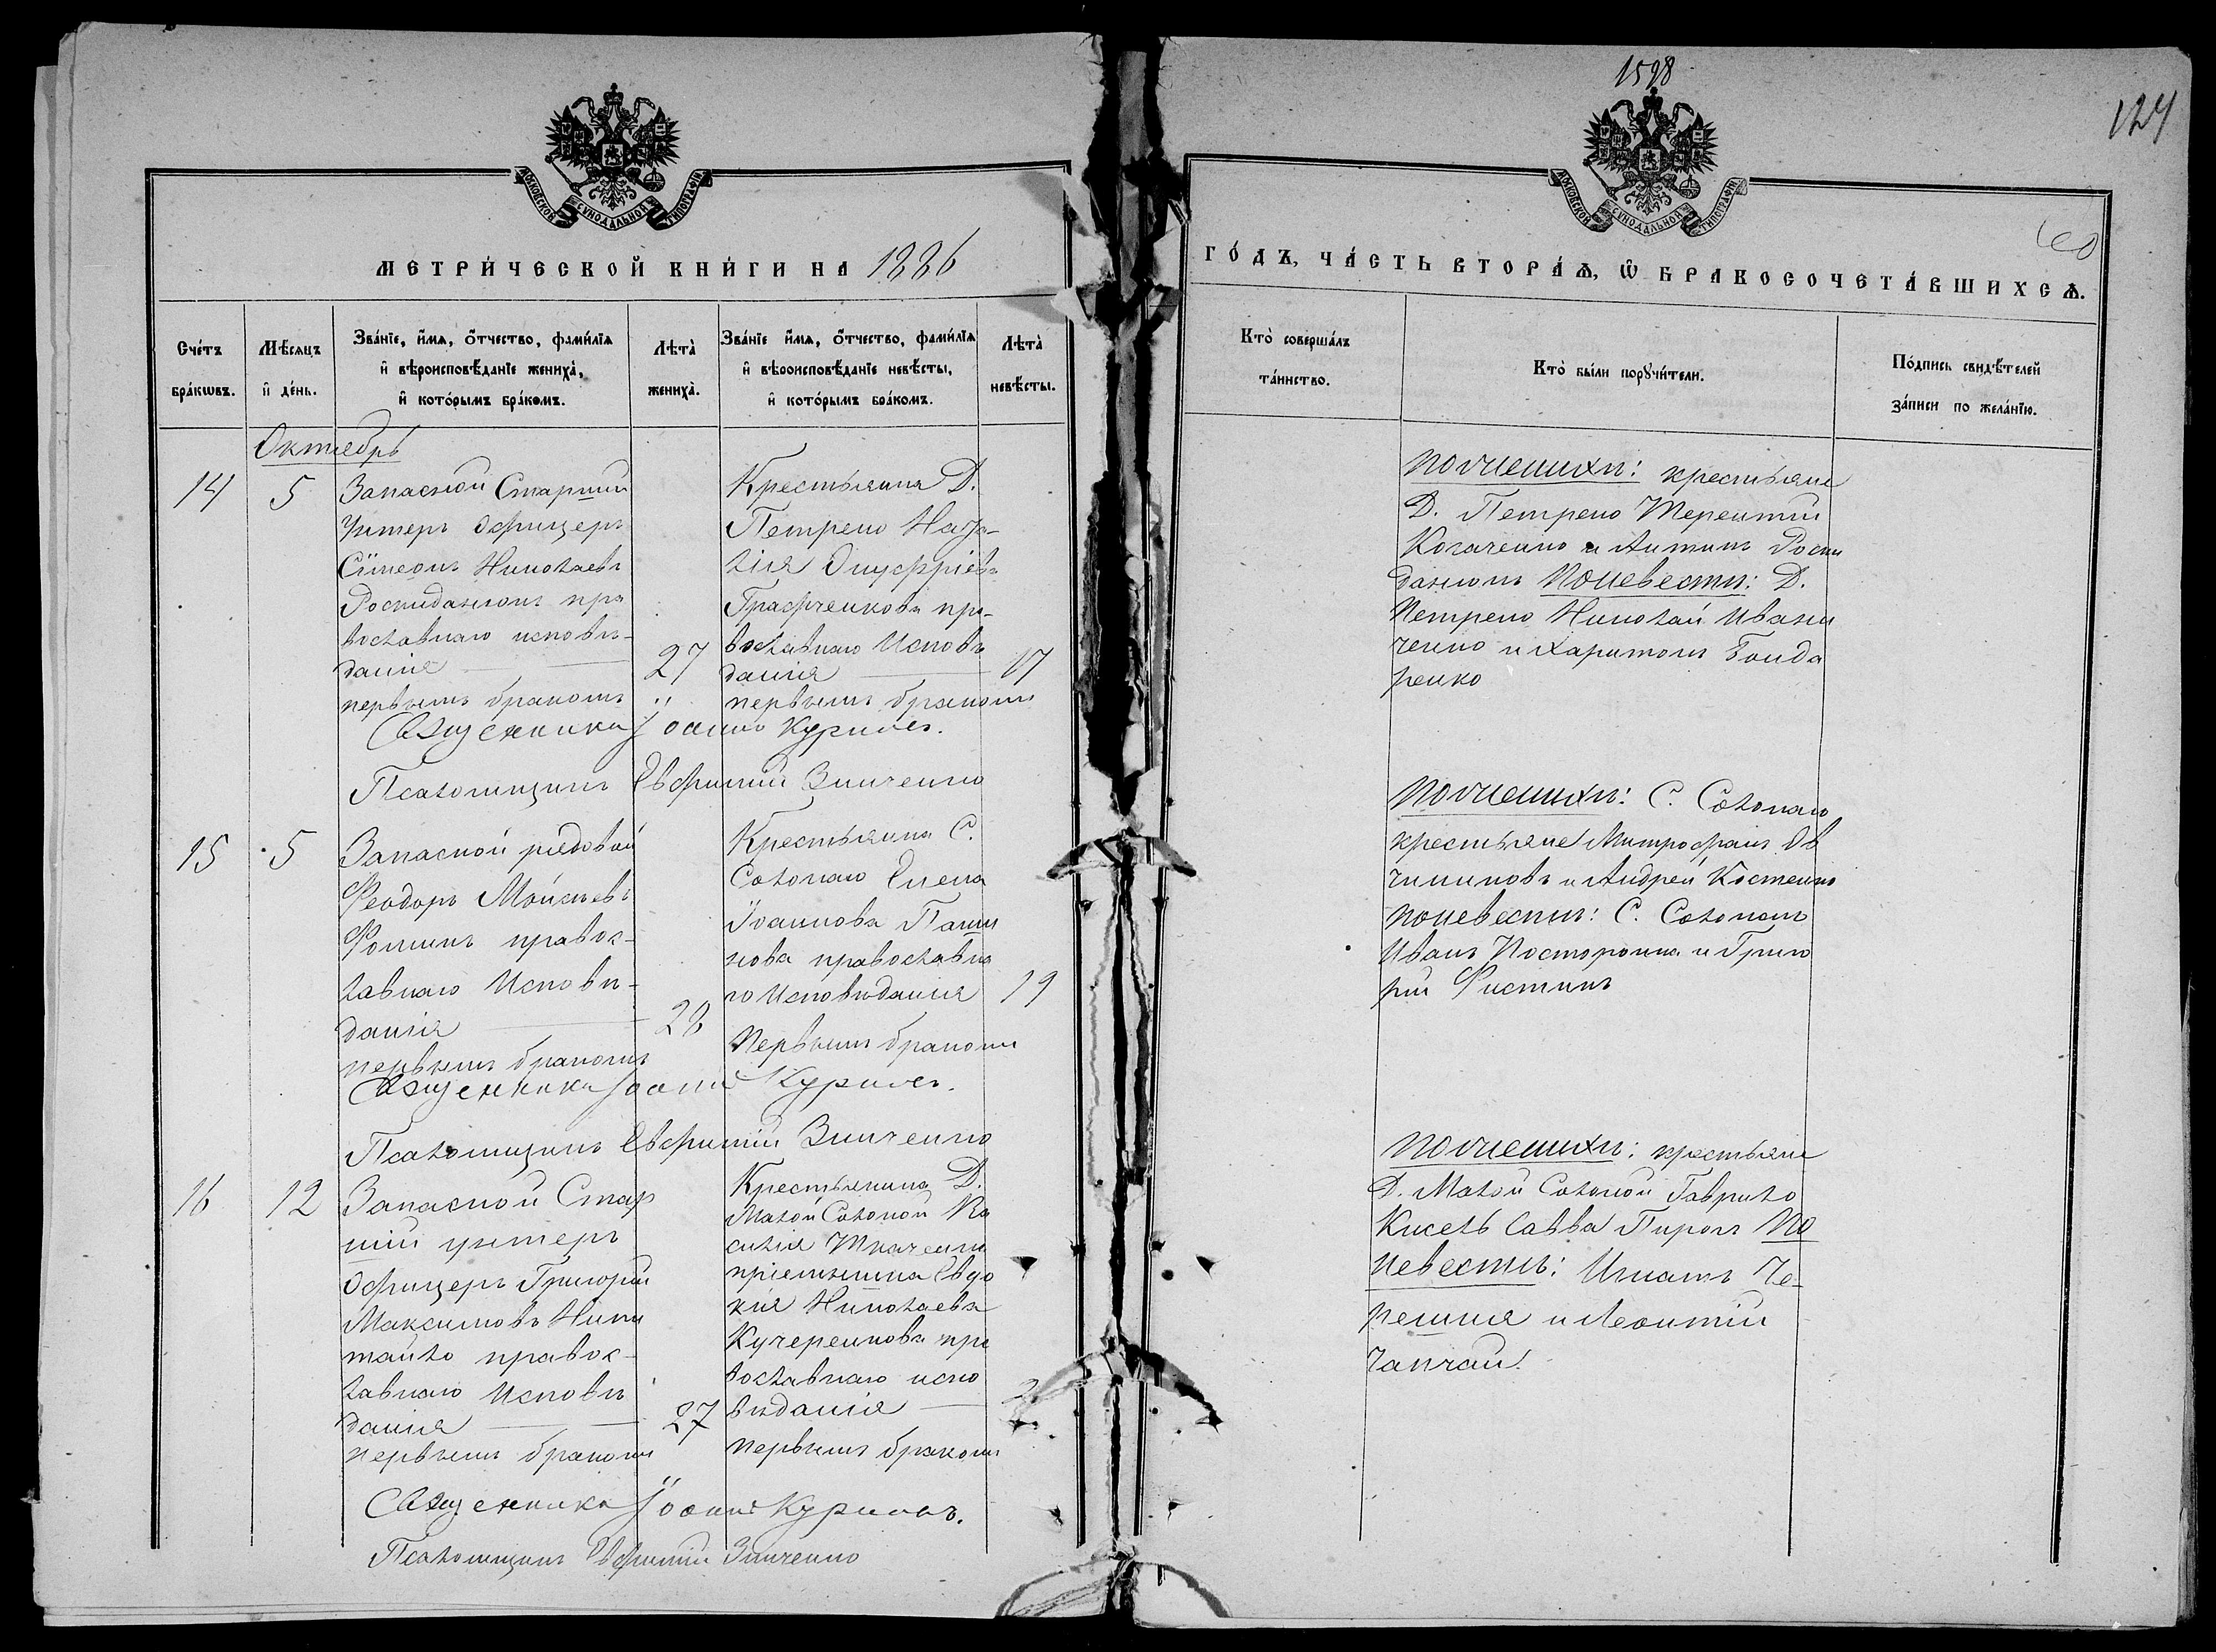 1598
124
60
МОСКОВСКОЙ СѴНОДАЛЬНОЙ ТИПОГРАФІИ
МОСКОВСКОЙ СѴНОДАЛЬНОЙ ТИПОГРАФІИ
МЕТРИ́ЧЕСКОЙ КНИ́ГИ НА 1886
ГО́ДЪ, ЧА́СТЬ ВТОРА́Ѧ, Ѡ҆ БРАКОСОЧЕТА́ВШИХСѦ.
Сче́тъ
бра́кѡвъ.
Мѣ́сяцъ
и҆ де́нь.
Зва́нїе, и҆́мѧ, ѻ҆́тчество, фами́лїѧ
и҆ вѣроисповѣ́данїе жениха̀,
и҆ кото́рымъ бра́комъ.
Лѣта̀
жениха̀.
Зва́нїе и҆́мѧ, ѻ҆́тчество, фами́лїѧ
и҆ вѣроисповѣ́данїе невѣ́сты,
и҆ кото́рымъ бра́комъ.
Лѣта̀
невѣ́сты.
Кто̀ соверша́лъ
та́инство.
Кто̀ бы́ли порꙋчи́тели.
По́дпись свидѣ́телей
за́писи по жела́нїю.
Октябрь
14
5
Запасной Старшій
Унтеръ Офицеръ
Сімеонъ Николаевъ
пра
вославнаго исповѣ-
данія
первымъ бракомъ
27
Крестьянка Д.
Петрено Ната-
лія Онуфріева
Графченкова пра-
вославнаго Исповѣ
данія
первымъ бракомъ
17
Священникъ Іоаннъ Куриловъ.
Псаломщикъ Евфимій Зинченко
По женихѣ: крестьяне
Д. Петрено Терентій
Косаченко и Антипъ Роски
дайломъ По невѣстѣ: Д.
Петрено Николай Ивани
ченко и Харитонъ Бонда
ренко
15
5
Запасной рядовой
Феодоръ Моѵсеевъ
Фоминъ правос-
лавнаго Исповѣ-
данія
первымъ бракомъ
28
Крестьянка С.
Солонаго Елена
Іоаннова Пани
кова православна
го Исповѣданія
Первымъ бракомъ
19
Священникъ Іоаннъ Куриловъ.
Псаломщикъ Евфимій Зинченко
По женихѣ: С. Солонаго
крестьяне Митрофанъ Ов
чинниковъ и Андрей Костенко
по невѣстѣ: С. Солонаго
Иванъ Посторонка и Григо
рій Фистинъ
16
12
Запасной Стар
шій унтеръ
Офицеръ Григорій
Максимовъ Ники
тайло правос-
лавнаго Исповѣ
данія
первымъ бракомъ
27
Крестьянина Д.
Малой Солоной Ва
силія Ткаченка
пріемышка Евдо
кія Николаева
Кучеренкова пра
вославнаго испо
вѣданія
первымъ бракомъ
Священникъ Іоаннъ Куриловъ.
Псаломщикъ Евфимій Зинченко
По женихѣ: крестьяне
Д. Малой Солоной Гаврило
Кисель Савва Пирогъ По
невѣстѣ: Игнатъ Че-
решня и Леонтій
Чапчай.